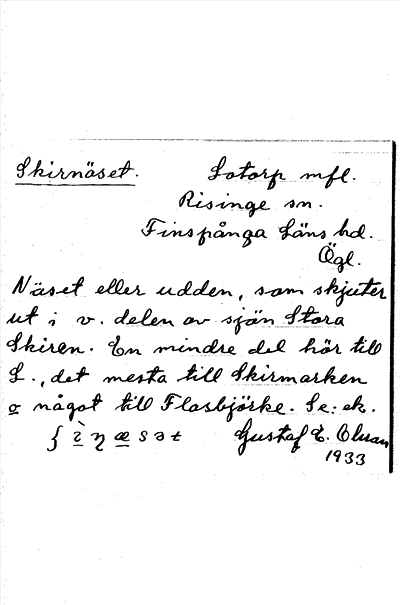 Skirnäset. Sotorp mfl.
Risinge sn.
Finspånga Läns hd.
Ögl.
Näset eller udden, som skjuter
ut i v. delen av sjön Stora
Skiren. En mindre del hör till
S., det mesta till Skirmarken
o något till Flasbjörke. Se: ek.
Gustaf E.
1933